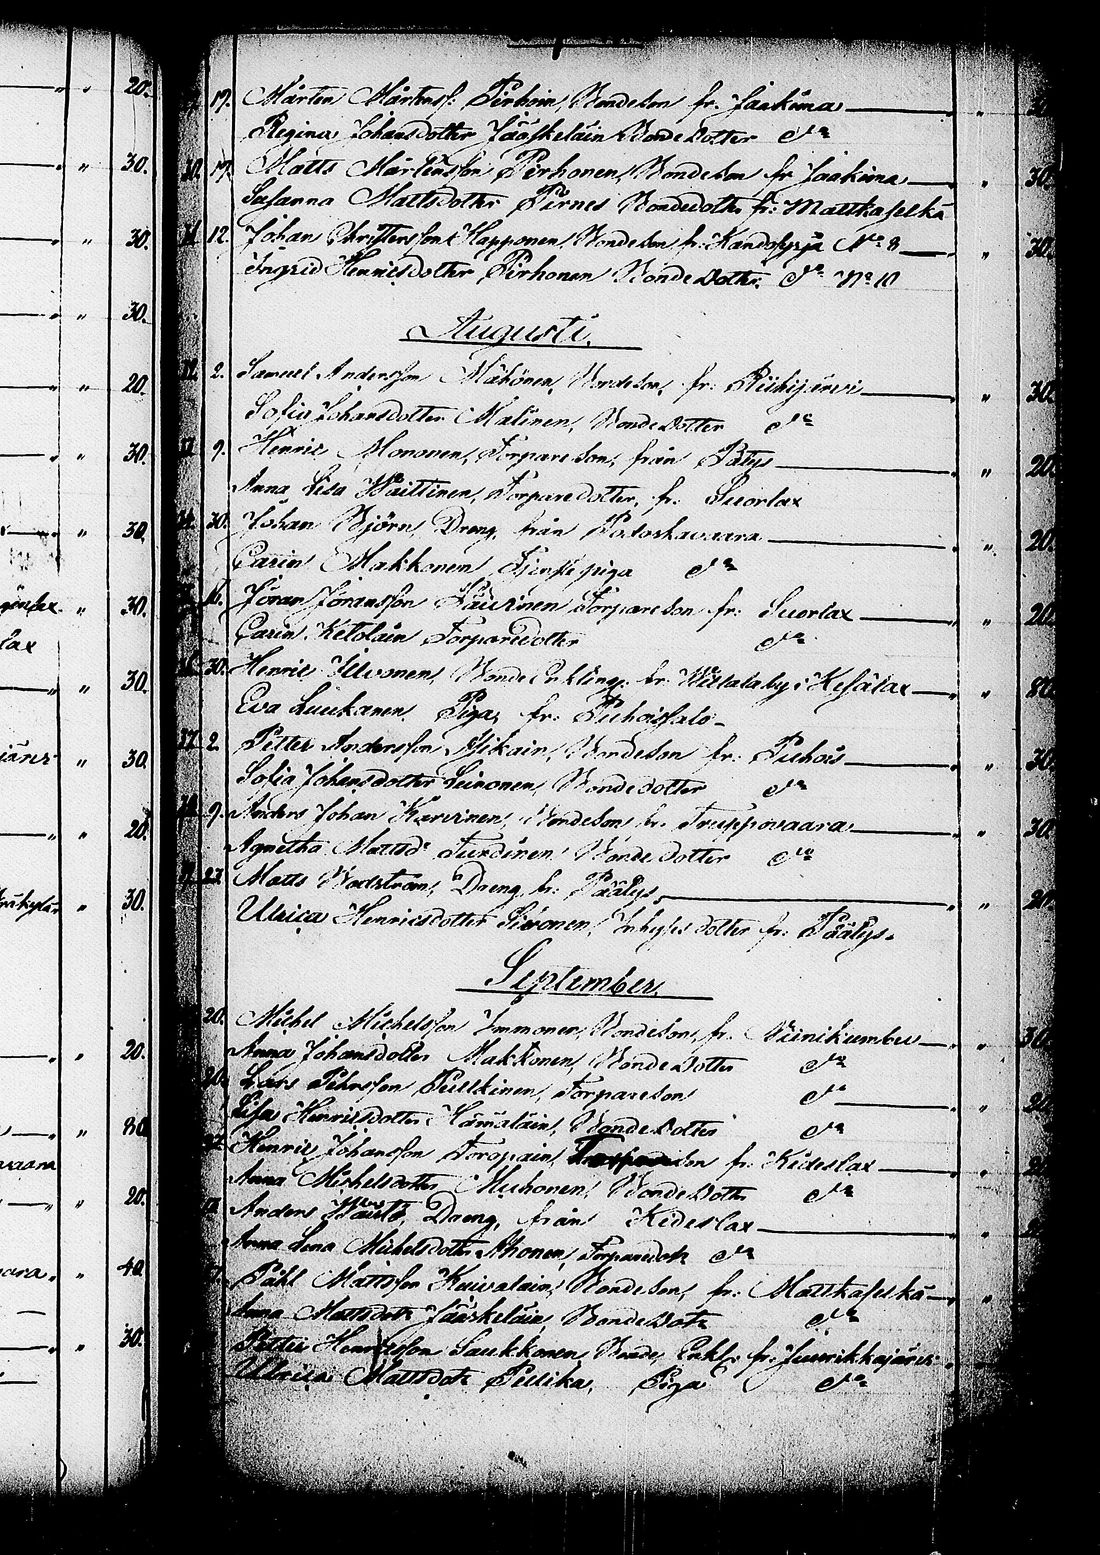 17. Mårten Mårtenss: Pirhoin, Bondeson fr. Jaakima
Regina Johansdotter Jääskeläin Bondedotter do
30. 17. Matts Mårtensson Pirhonen, Bondeson fr Jaakima 30.
Susanna Mattsdotter Pirnes Bondedotter fr: Mattkaselkä
31. 12. Johan Christersson Happonen, Bondeson fr. Kandosyrjä No 8 30.
Ingrid Henricsdotter Pirhonen Bondedotter. do No 10
Augusti.
32. 2. Samuel Andersson Mähönen, Bondeson, fr: Riihijärvi 30.
Sofia Johansdotter Malinen, Bondedotter do
33. 9. Henric Mononen, Torpareson, från Pätys 20.
Anna Lisa Wäittinen, Torparedotter, fr: Suorlax
34. 30. Johan Björn, Dreng, från Potoskavaara 20.
Carin Makkonen Tjenstepiga do
16. Jöran Jöransson Päivinen Torpareson fr: Suorlax 20.
Carin Ketolain Torparedotter do
36. 30. Henric Ilvonen, Bonde Enkling, fr: Willala by i Kesälax 80.
Eva Luukanen, Piga, fr: Puhoissalo
37. 2. Petter Andersson Asikain, Bondeson fr: Puhois 30.
Sofia Johansdotter Leinonen, Bondedotter do
38. 9. Anders Johan Karvinen, Bondeson fr: Truppovaara 30.
Agnetha Mattsd: Turdinen, Bondedotter do
39. 27. Matts Wadström, Dreng, fr: Päätys, 20.
Ulrica Henricsdotter Sivonen, Inhysesdotter fr: Päätys.
September.
20. Michel Michelsson Immonen, Bondeson, fr: Niinikumbu 30.
Anna Johansdotter Makkonen, Bondedotter do
20. Lars Pehrsson Pulkinen, Torpareson do 20.
Lisa Henricsdotter Hämäläin, Bondedotter do
Henric Johansson Toropain, son fr: Kideslax
Anna Michelsdotter Muhonen, Bondedotter do
Anders Dreng, från Kideslax
Anna Lena Michelsdotter Ahonen, Torparedotr do
Påhl Mattsson Kaivalain, Bondeson, fr: Mattkaselkä
Anna Mattsdotr Jääskeläin, Bondedotr do
Petter Henricsson Saukkonen, Bonde Enkl: fr: Juurikkajärvi
Ulrica Mattsdotr Pulika, Piga do
20.
30.
30.
30.
20.
30.
30.
30.
30.
30.
20.
30.
20.
80.
20.
40.
30.